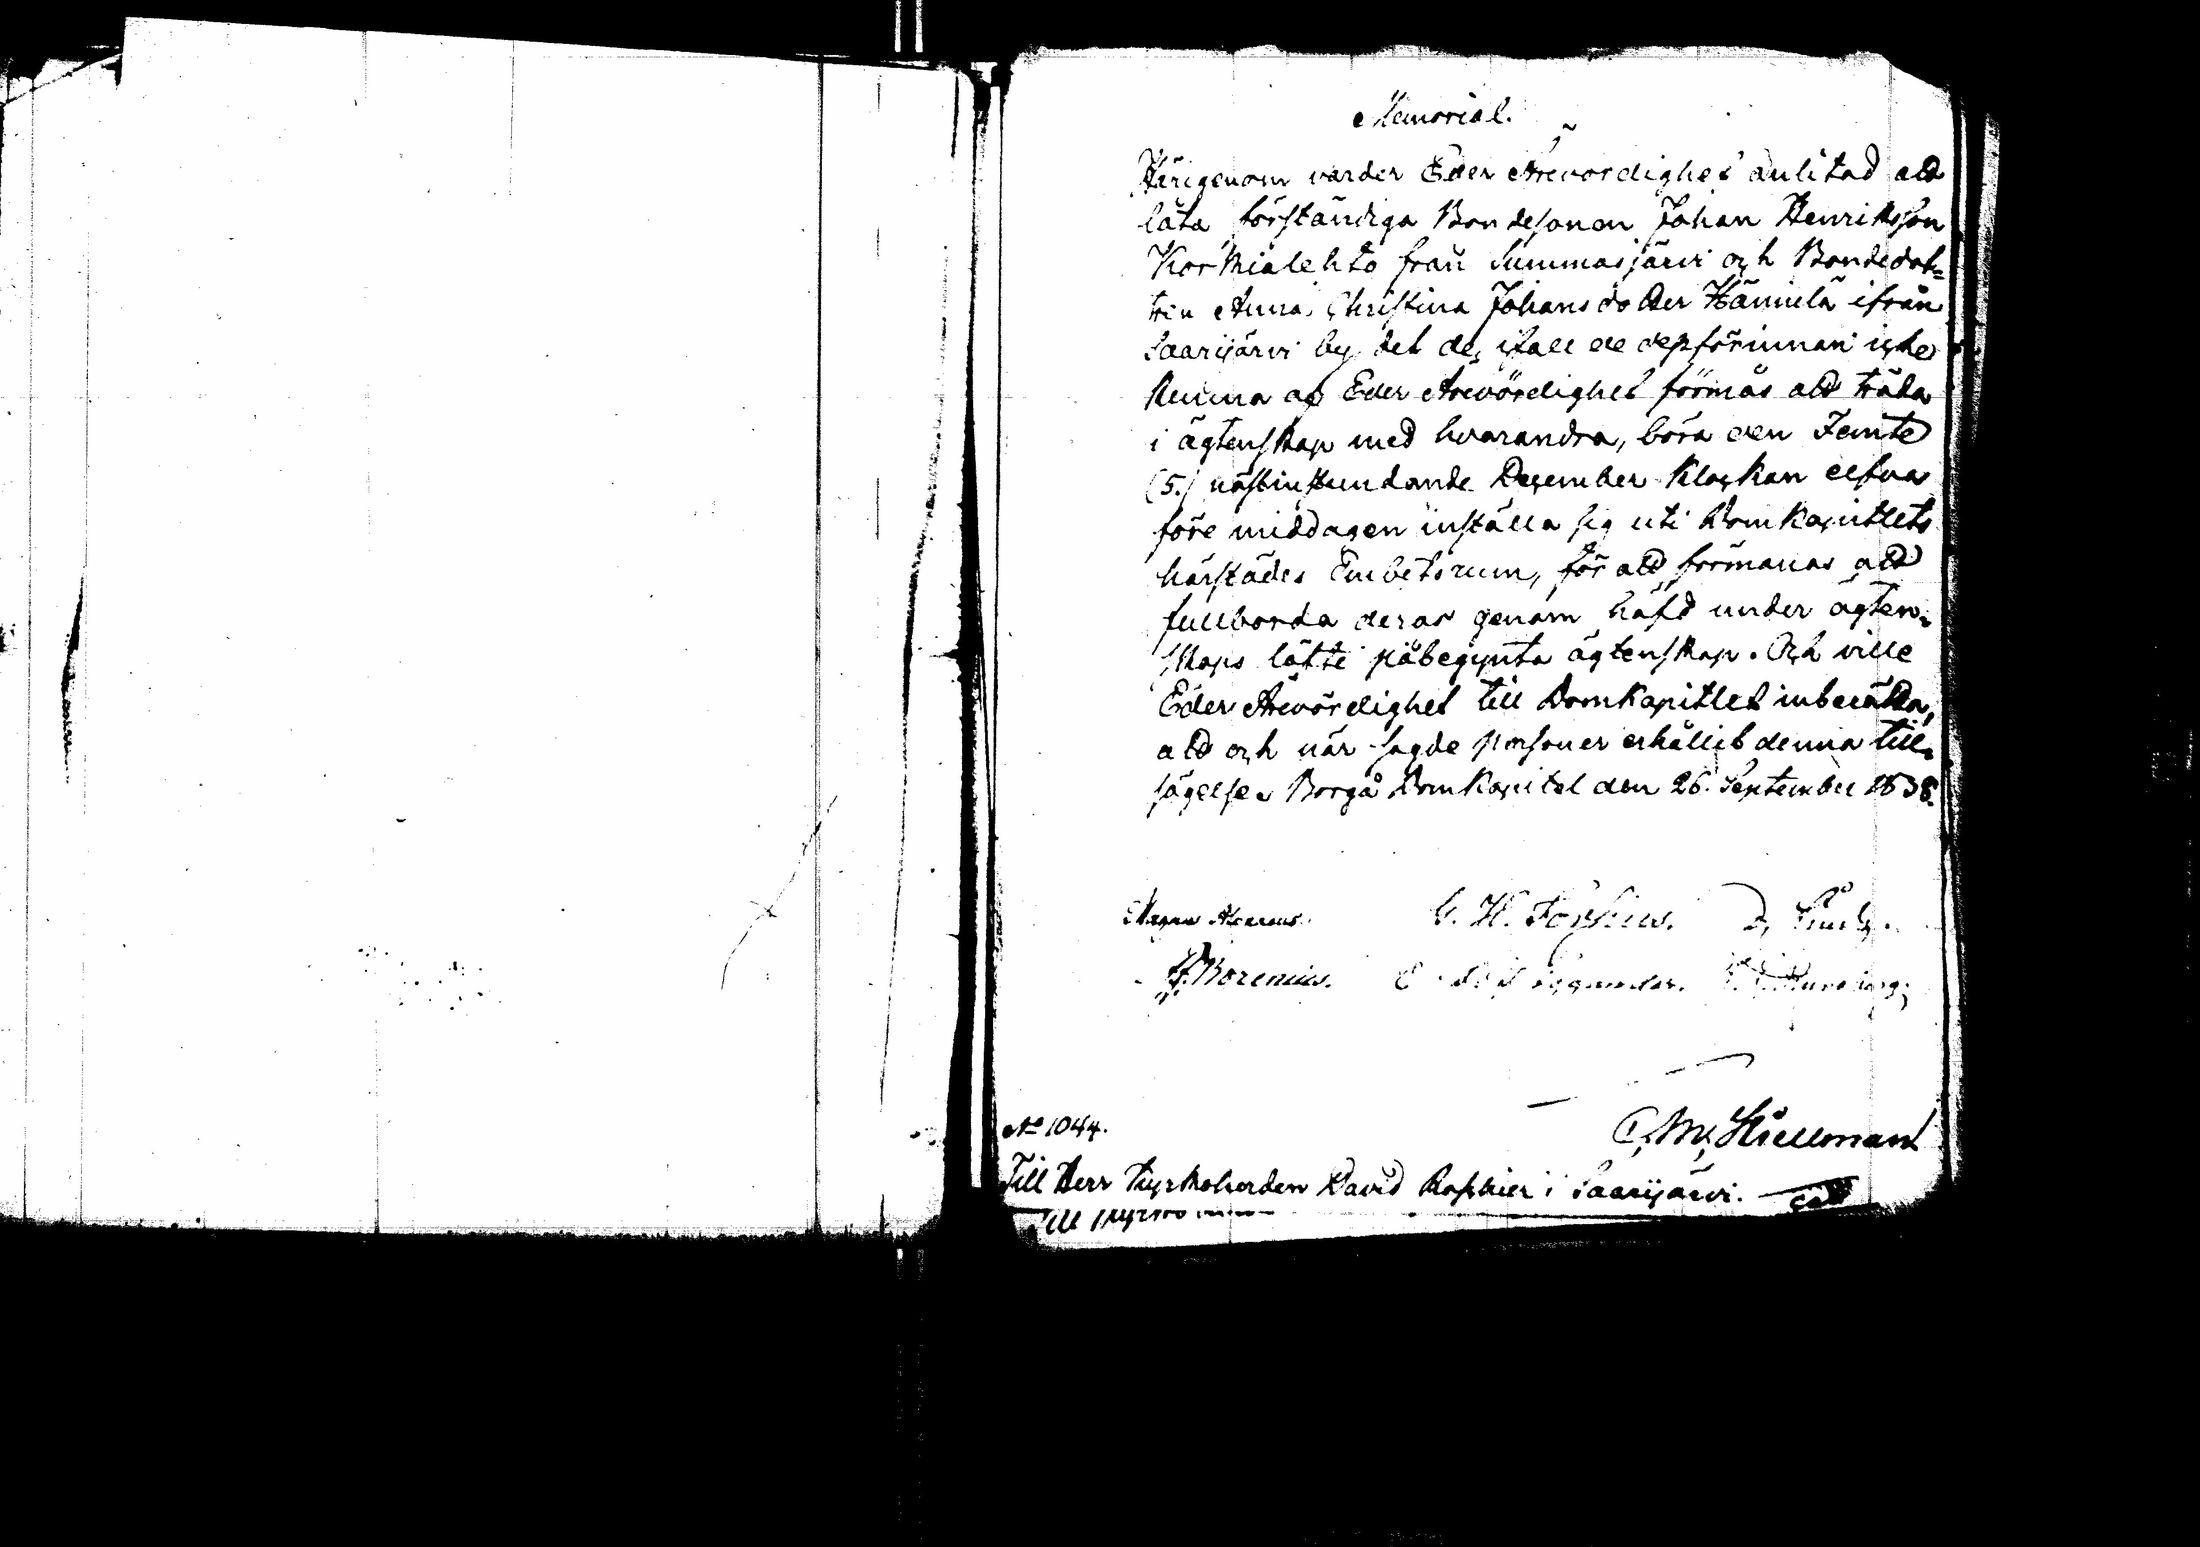 Memorial.
Härigenom varder Eder Ärevördighet anlitad att
låta förständiga Bondesonen Johan Henriksson
Korkialehto från Summasjärvi och Bondedot=
tren Anna Christina Johansdotter Hännilä ifrån
Saarijärvi by, det de, ifall de dessförinnan icke
kunna af Eder Ärevördighet förmås att träda
i ägtenskap med hvarandra, böra den Femte
(5.) nästinstundande December Klockan elfva
före middagen inställa sig uti Domkapitlets
härstädes Embetsrum, för att förmanas att
fullborda deras genom häfd under ägten=
skaps löfte påbegynta ägtenskap. Och ville
Eder Ärevördighet till Domkapitlet inberätta,
att och när sagde personer erhållit denna till=
sägelse. Borgå Domkapitel den 26. September 1838.
Magnus Alopæus. G. H. Forsius.
Borenius.
C. M. Kiellman
No 1044.
Till Herr Kyrkoherden David Roschier i Saarijärvi.